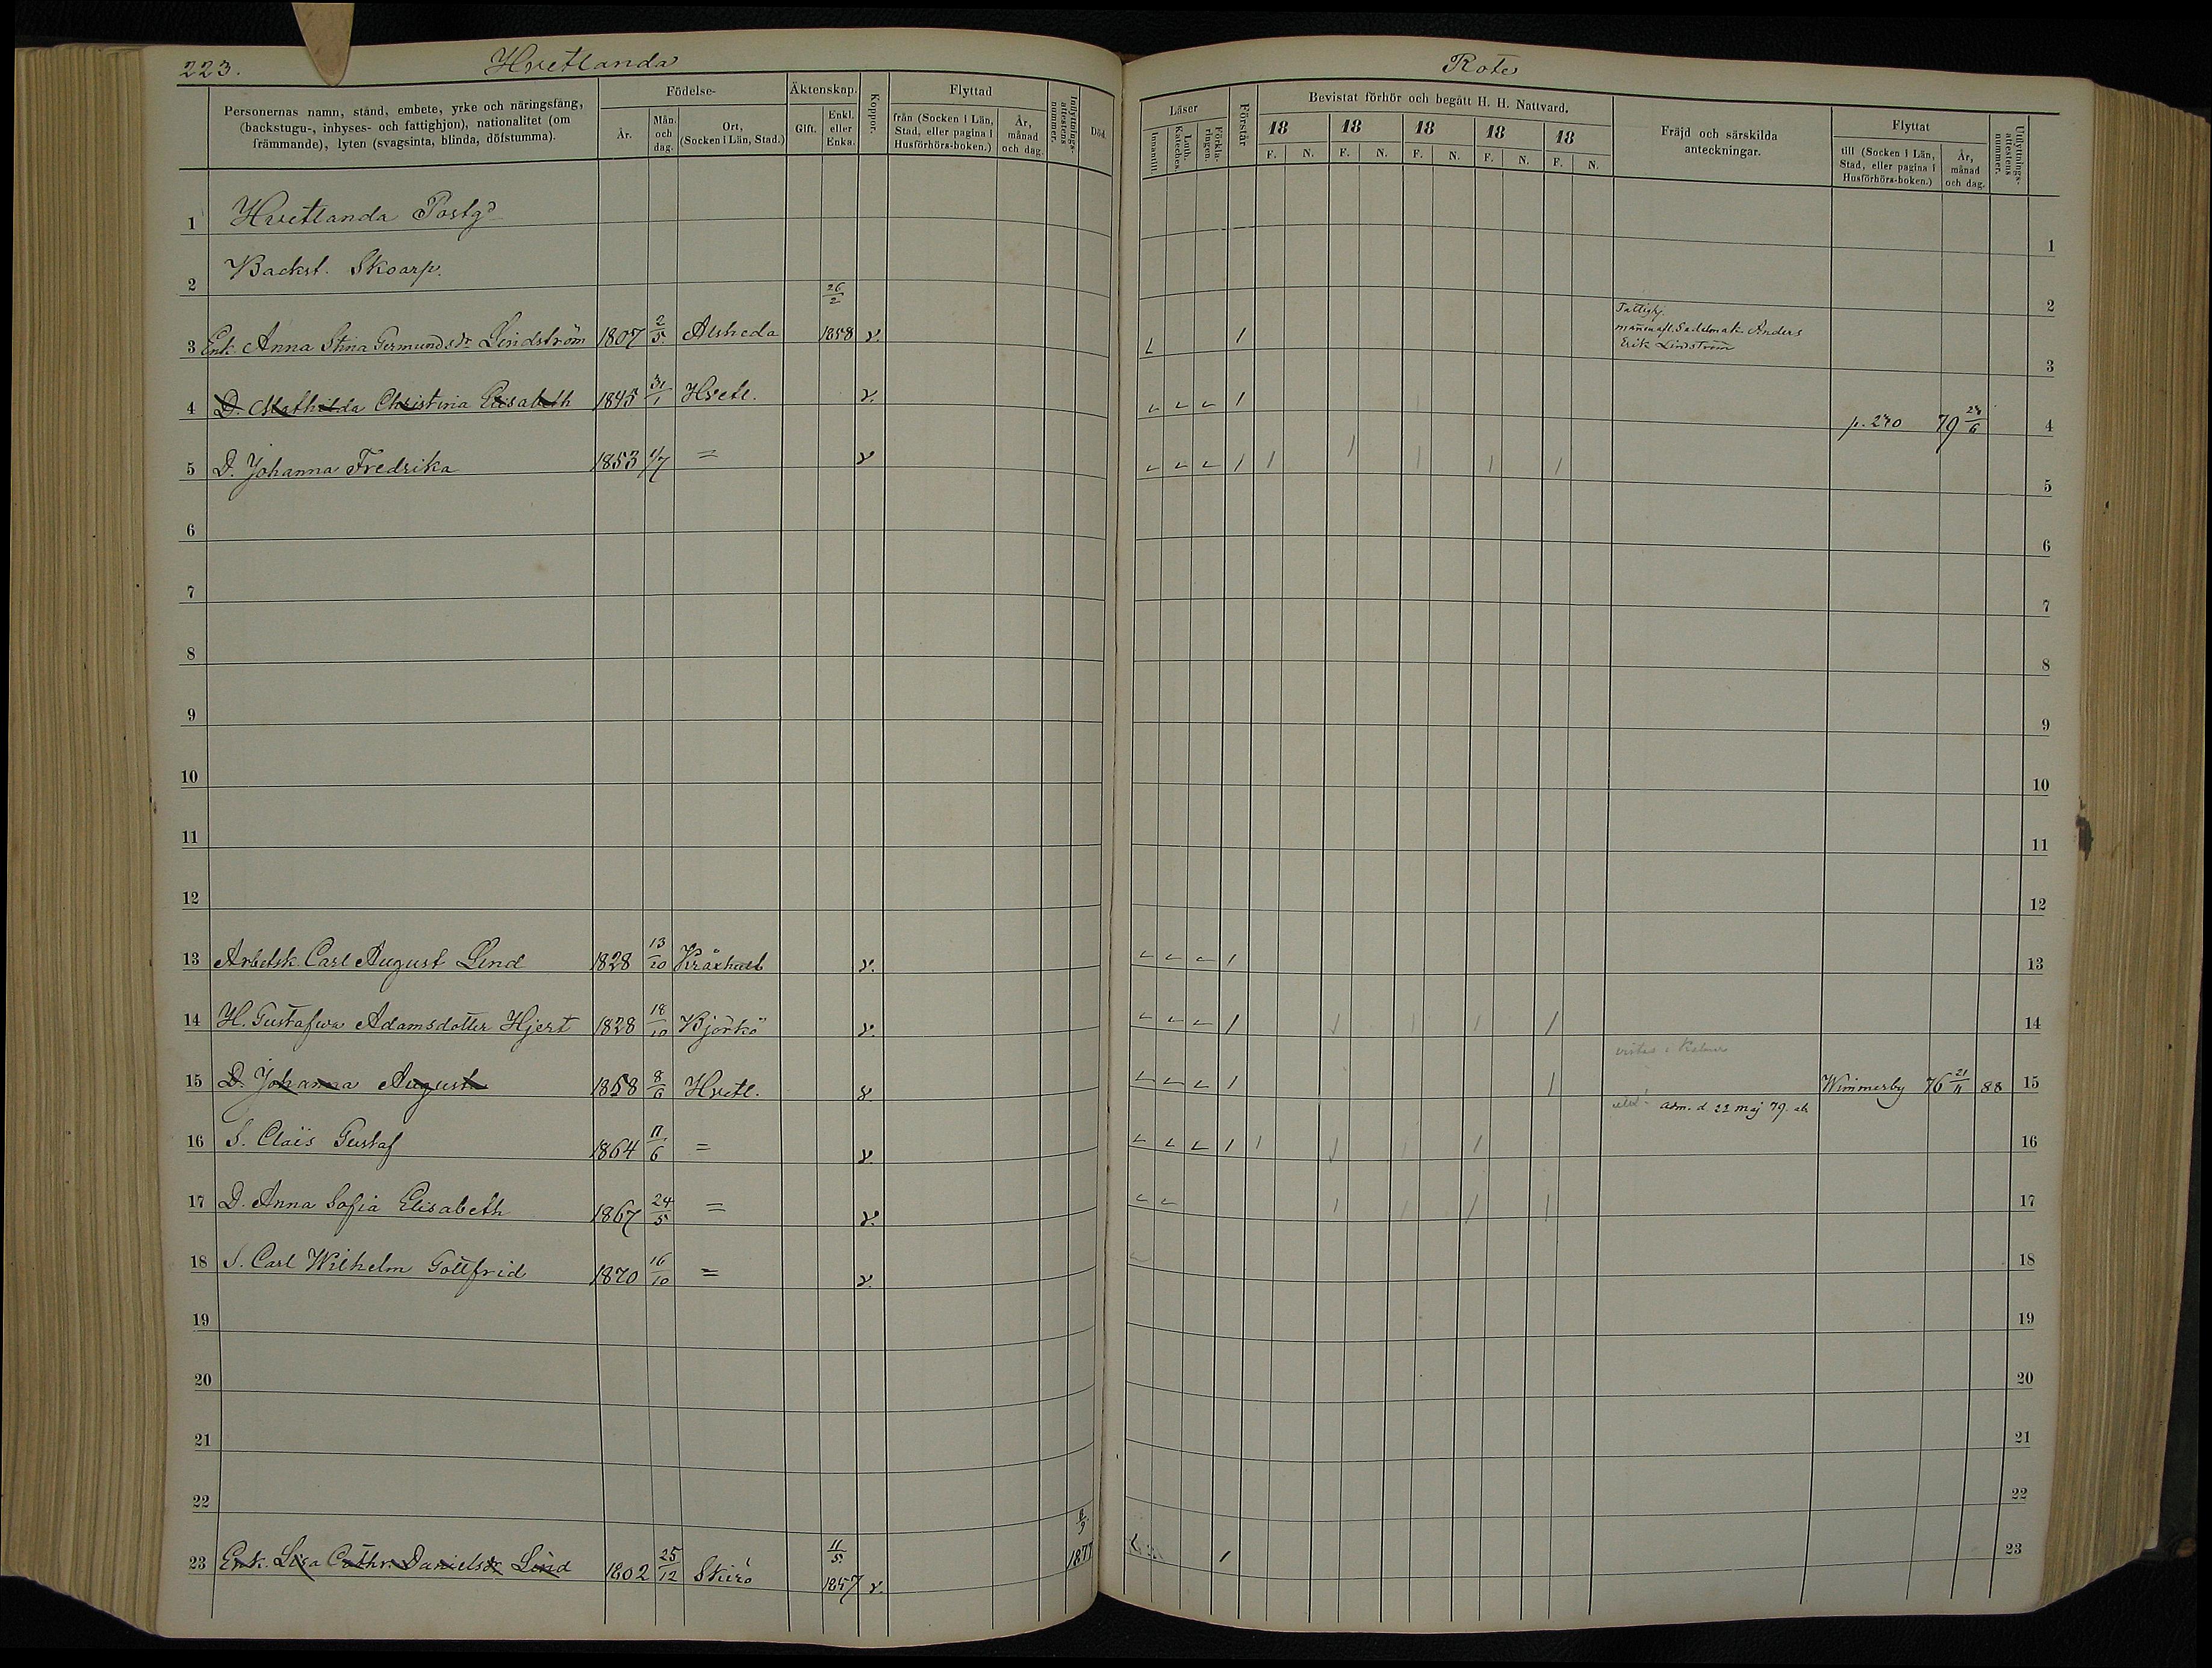 223.
Hvetlanda
Rote
Personernas namn, stånd, embete, yrke och näringsfång,
(backstugu-, inhyses- och fattighjon), nationalitet (om
främmande), lyten (svagsinta, blinda, döfstumma).
Födelse-
År.
Mån.
och
dag.
Ort,
(Socken i Län, Stad.)
Äktenskap.
Gift.
Enkl.
eller
Enka.
Koppor.
Flyttad
från (Socken i Län,
Stad, eller pagina i
Husförhörs-boken.)
År,
månad
och dag.
Inflyttnings-
attestens
nummer.
Död.
Läser
Innantill.
Luth.
Kateches.
Förkla-
ringen.
Förstår
Bevistat förhör och begått H. H. Nattvard.
18 18 18 18 18
F. N. F. N. F. N. F. N. F. N.
Fräjd och särskilda
anteckningar.
Flyttat
till (Socken i Län,
Stad, eller pagina i
Husförhörs-boken.)
År,
månad
och dag.
Utflyttnings-
attestens
nummer.
1 Hvetlanda Postgd 1
2 Backst. Skoarp. 2
3 Enk. Anna Stina Germundsdr Lindström 1807 2/5 Alsheda 26/2 1858 v. Fattighj.
Erik Lindström 3
4 D. Mathilda Christina Elisabeth 1845 31/1 Hvetl. v. p. 240 79 4
5 D. Johanna Fredrika 1853 1/7 = v 5
6 6
7 7
8 8
9 9
10 10
11 11
12 12
13 Arbetsk. Carl August Lind 1828 13/10 Kråxhult v. 13
14 H. Gustafva Adamsdotter Hjert 1828 18/10 Björkö v. 14
15 D. Johanna Augusta 1858 8/6 Hvetl. v. Wimmerby 76 21/11 88 15
16 S. Claës Gustaf 1864 11/6 = v. adm. d 22 maj 79. 16
17 D. Anna Sofia Elisabeth 1867 24/5 = v. 17
18 S. Carl Wilhelm Gottfrid 1870 16/10 = v. 18
19 19
20 20
21 21
22 22
23 Enk. Lisa Cathr. Danielsdr Lind 1802 25/12 Skirö 11/5 1857 v. 1877 23